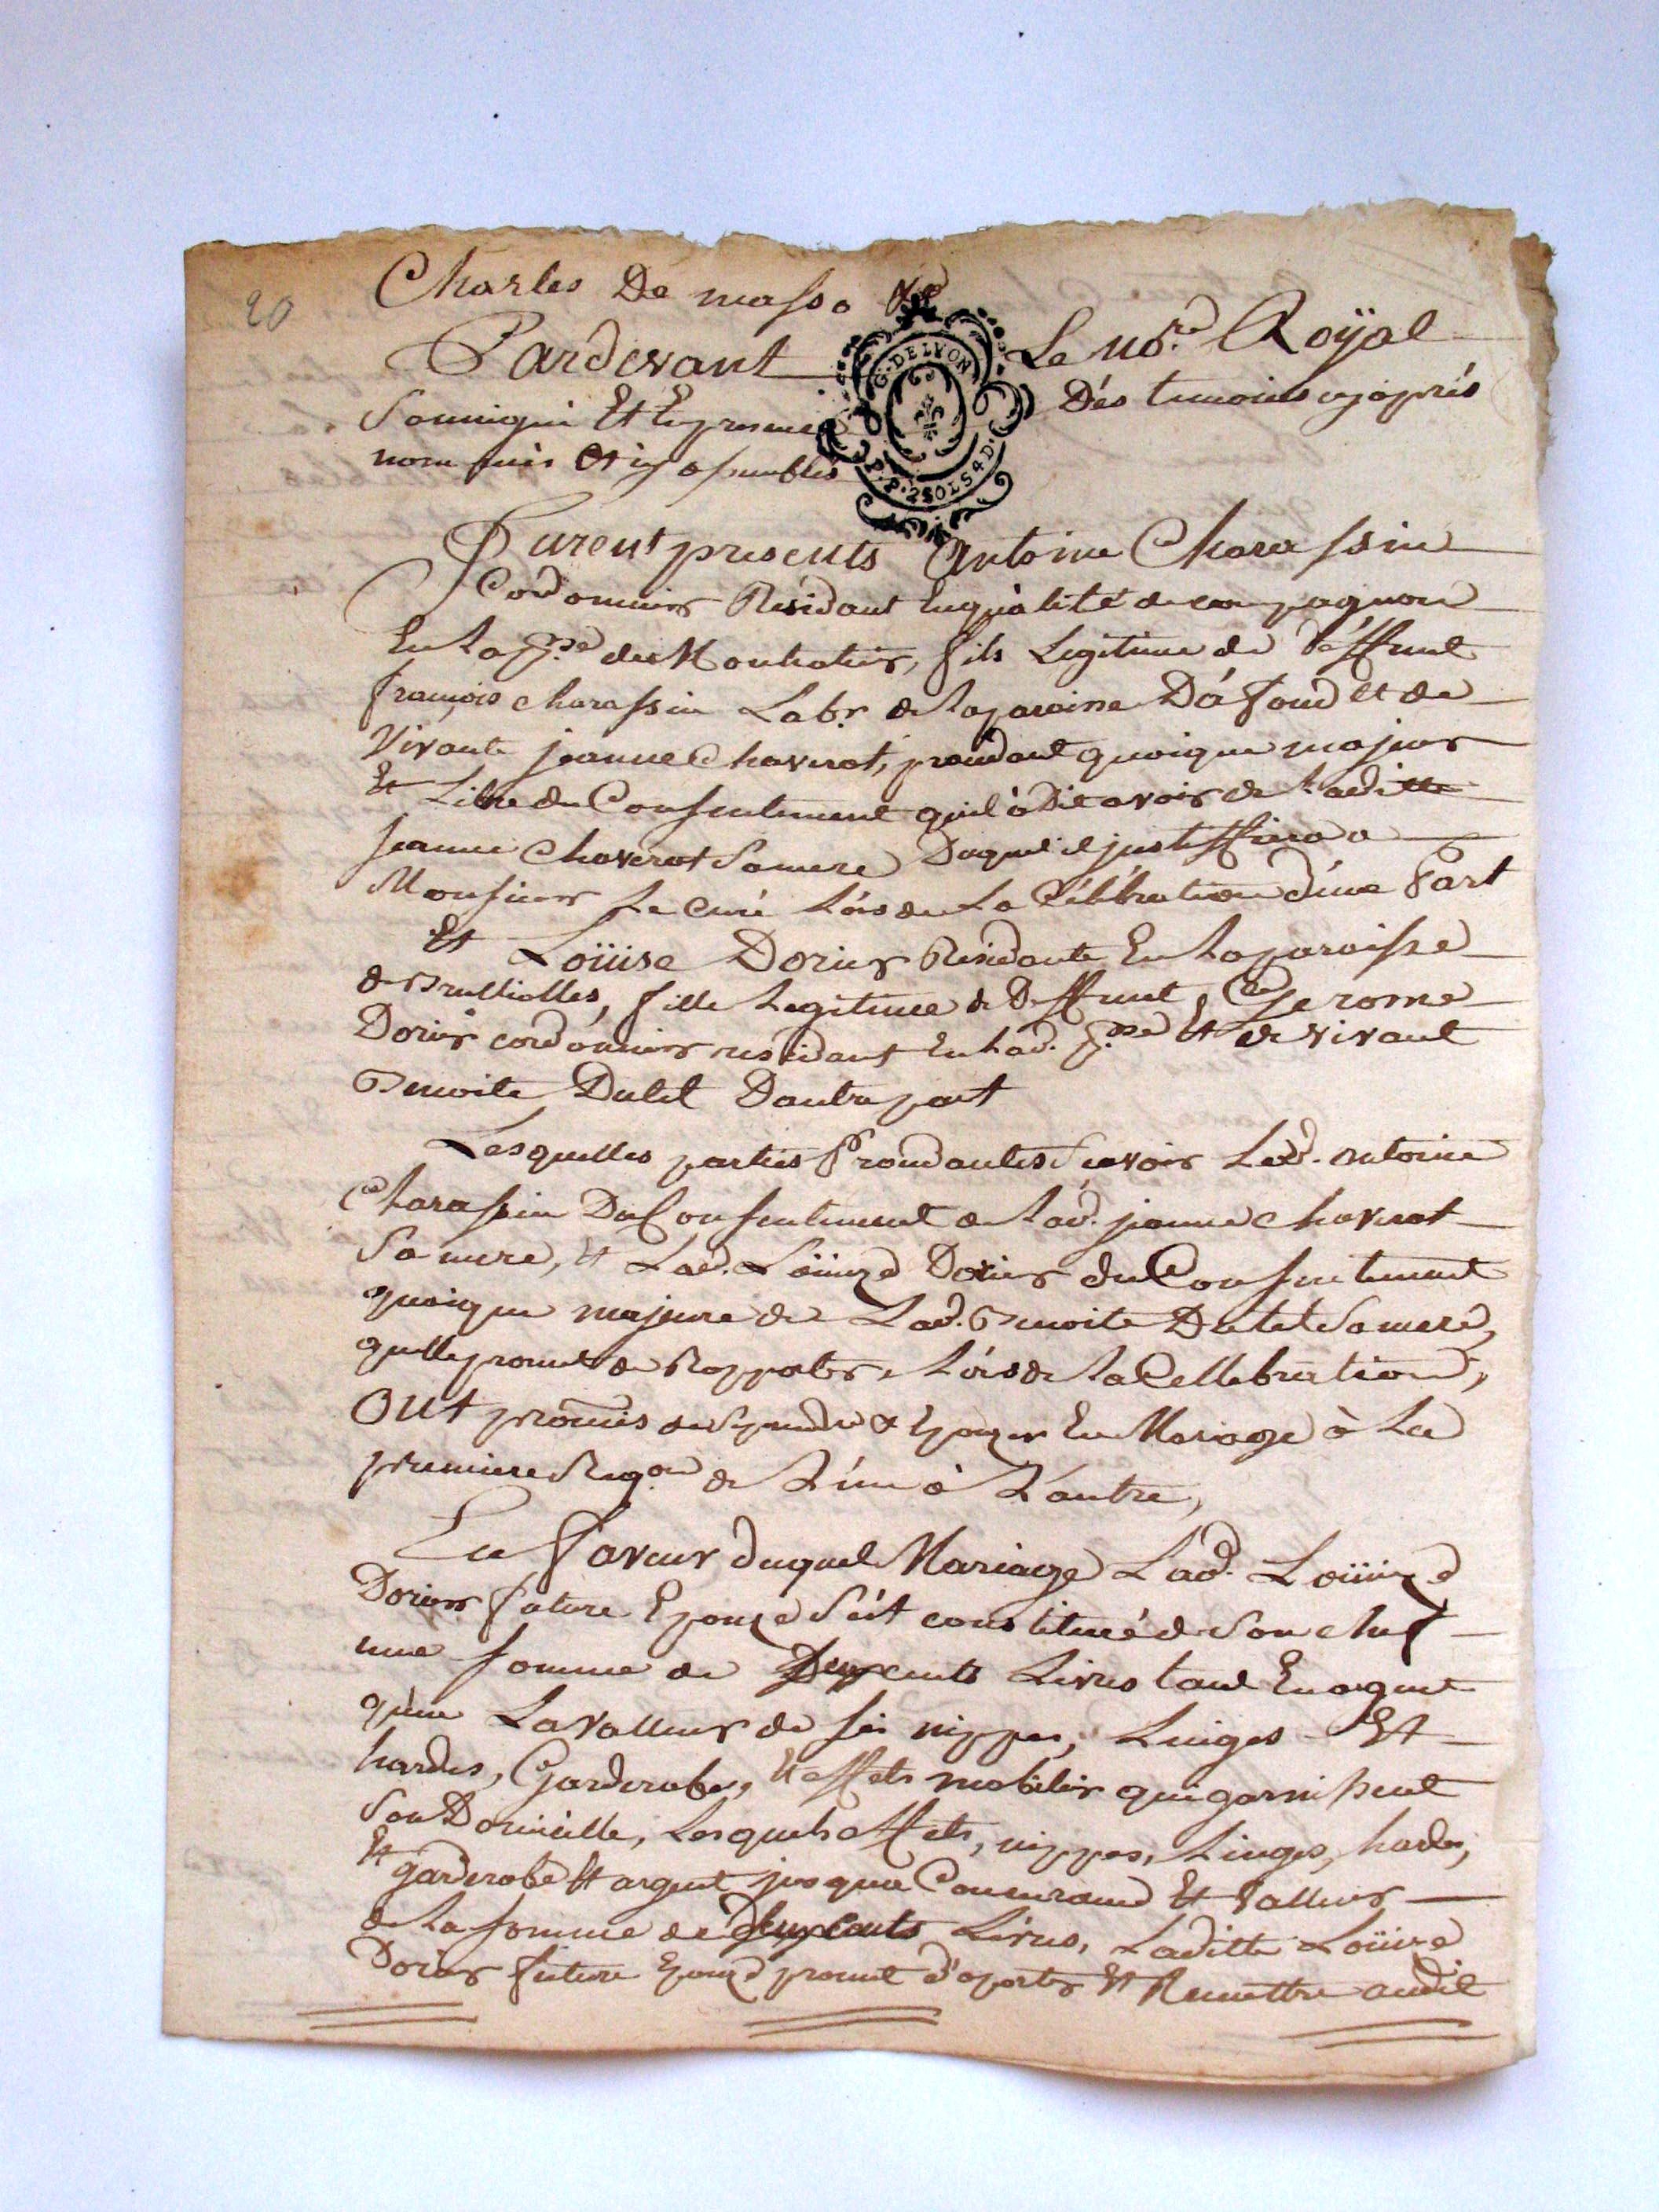 20
Charles De masso &c
Pardevant Le no.re Roÿal
G. DE LYON
Soussigné Et En presence Dés temoins cy aprés
nommés Et
P.P. 2 SOLS 4 D.
Furent presents Antoine Charassin
Cordonnier Residant En qualité de compagnon
En la p.sse de Montrotier, fils Legitime de Déffunt
françois charassin Lab.r de la paroisse D'áffoud et de
Vivante jeanne Chaverot, procedant quoique majeur
Et Libre du Consentement quil à Dit avoir de Laditte
jeanne Chaverot Sa mere Duquel il justiffiera a
Monsieur Le Curé Lórs de La Célébration d'une Part
Et Loüise Dorier Residante En la paroisse
de Brullioles, fille Legitime de Deffunt Jerome
Dorier cordonnier residant En lad. p.sse Et de vivant
Benoite Dutel D'autre part
Lesquelles parties Procedantes Scavoir Led. Antoine
Charassin Du Consentement de lad. jeanne chaverot
Sa mere, Et Lad. Loüize Dorier du Consentement
quoique majeure de Lad. Benoite Dutel Sa mere,
quelle promet de Rapporter Lórs de la Cellebration,
Ont promis de Se prendre & Epouzer En Mariage à La
premiere Req.on de L'un à L'autre,
En faveur duquel Mariage Lad. Loüize
Dorier future Epouze S'ést constituée de Son chef
une somme de Deux cents Livres tant En argent
qu'en La valleur de ses nippes, Linges Et
hardes, Garderobe, Et effets mobiliers qui garnissent
Son Domicille, Lesquels effets, nippes, Linges, hardes,
Et garderobe Et argent jusqua Concurance Et Valleur
de La somme de Deux Cents Livres, Laditte Loüize
Dorier future Epouze promet d'aporter Et Remettre audit